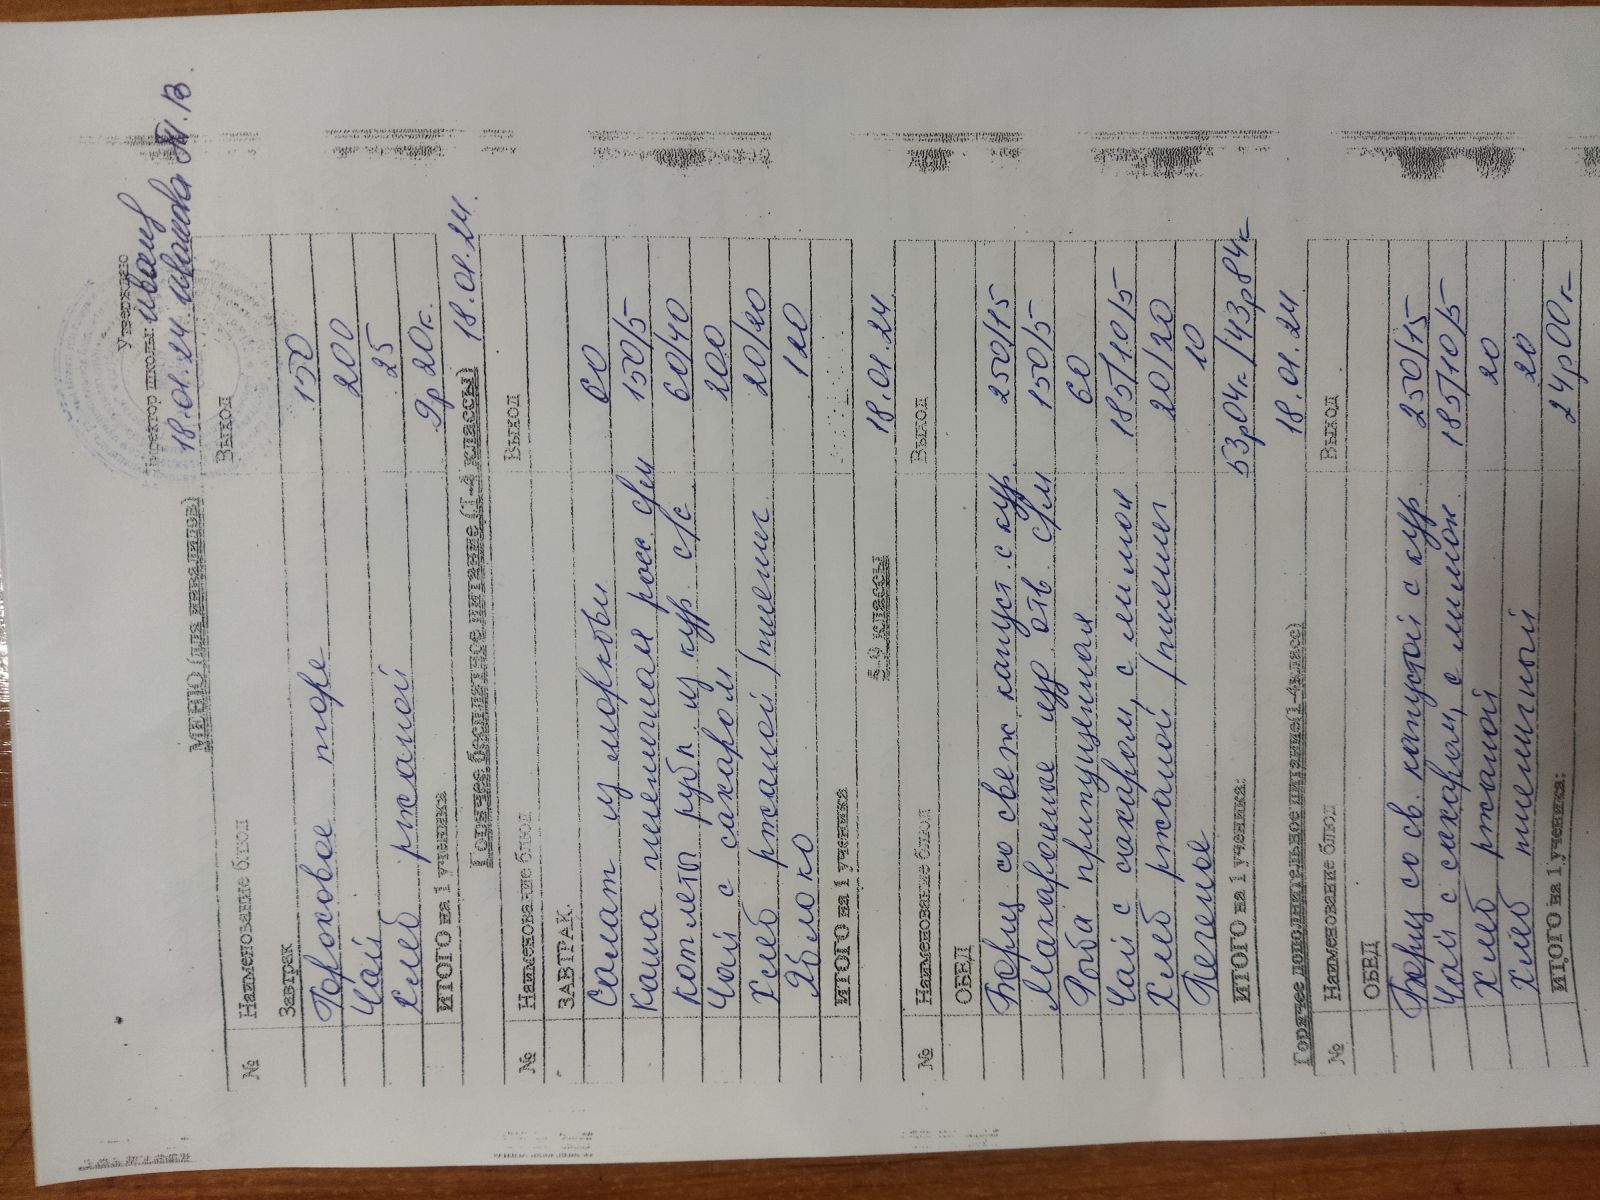 Утверждаю
Директор школы:
18.01.24. Иванова Т.В.
МЕНЮ (для навалида)
№ Наименование блюд Выход
Завтрак
Гороховое пюре 150
Чай 200
Хлеб ржаной 25
ИТОГО на 1 ученика 9р 20к.
Горячее бесплатное питание (1-4 классы) 18.01.24.
№ Наименование блюд Выход
ЗАВТРАК.
Салат из моркови 60
Каша пшеничная расс с/м 150/5
Котлета рубл из кур с/с 60/40
Чай с сахаром 200
Хлеб ржаной/пшенич 20/20
Яблоко 120
ИТОГО на 1 ученика
5-9 классы 18.01.24
№ Наименование блюд Выход
ОБЕД
Борщ со свеж капуст. с кур 250/15
Макароные изр отв с/м 150/5
Рыба припущенная 60
Чай с сахаром, с лимон 185/10/5
Хлеб ржаной/пшенич 20/20
Печенье 10
ИТОГО на 1 ученика: 53р04к/43р84к
Горячее дополнительное питание(1-4класс) 18.01.24
№ Наименование блюд Выход
ОБЕД
Борщ со св. капустой с кур 250/15
Чай с сахаром, с лимон 185/10/5
Хлеб ржаной 20
Хлеб пшеничный 20
ИТОГО на 1 ученика: 24р00к